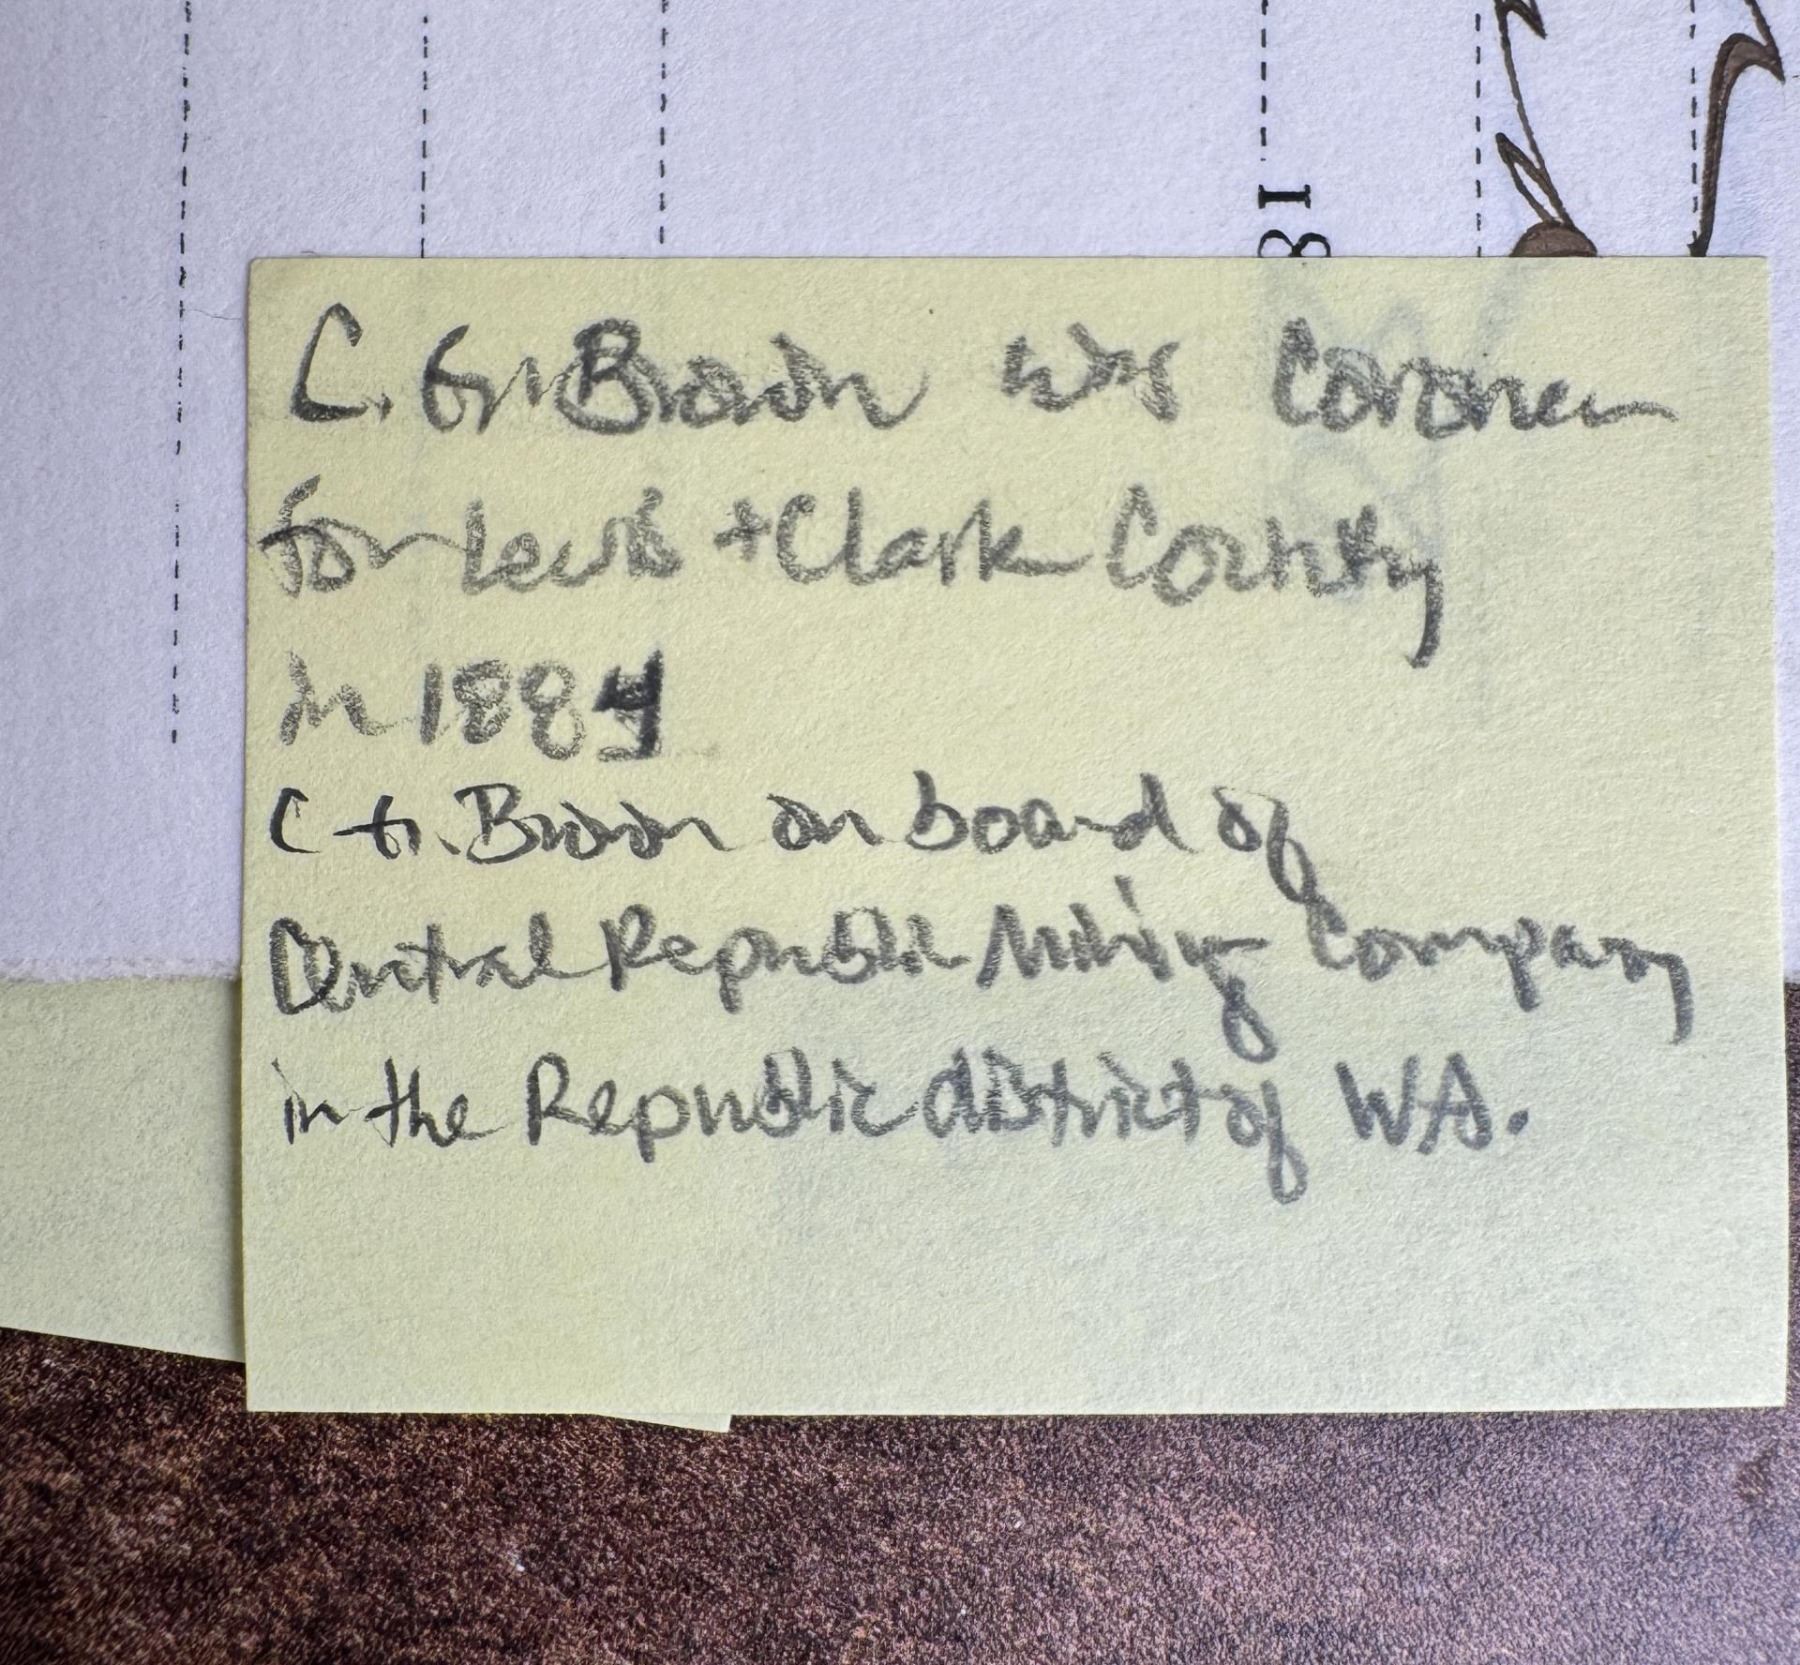 18
C. G. Brown was Coroner
for Lewis + Clark County
in 1884
C G. Brown on board of
Central Republic Mining Company
in the Republic district of WA.